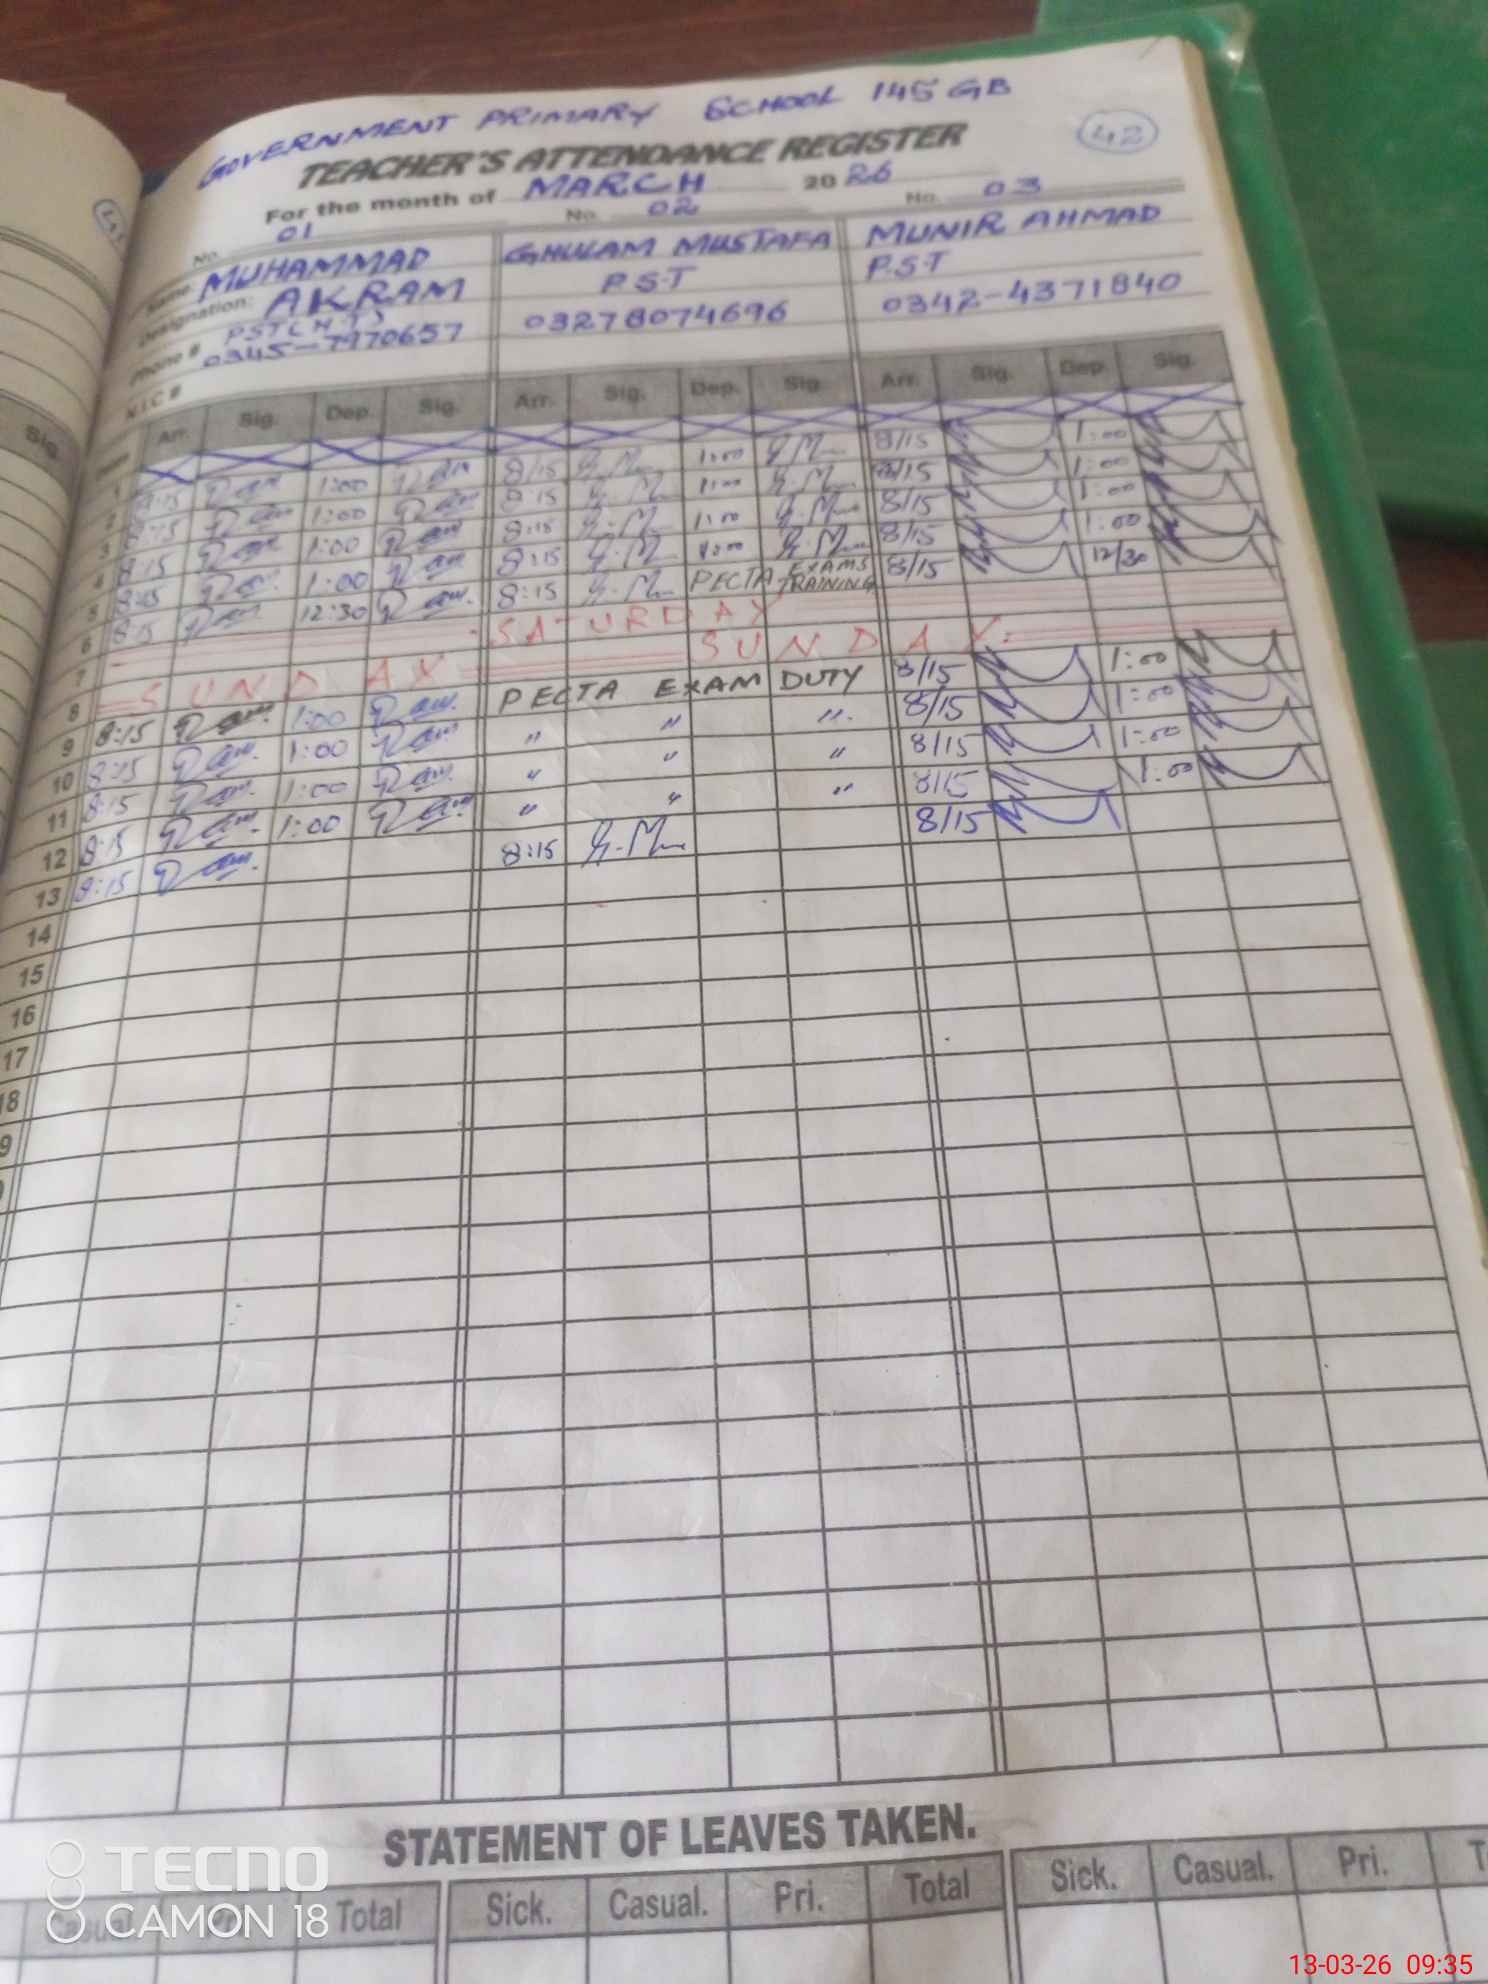 42
GOVERNMENT PRIMARY SCHOOL 145 GB
TEACHER'S ATTENDANCE REGISTER
For the month of MARCH 2026
No. 01 No. 02 No. 03
Name: MUHAMMAD AKRAM GHULAM MUSTAFA MUNIR AHMAD
Designation: P.S.T P.S.T
Phone # 0345-7970657 03278074696 0342-4371840
N.I.C #
Arr. Sig. Dep. Sig. Arr. Sig. Dep. Sig. Arr. Sig. Dep. Sig.
1
2 8:15 1:00 8/15 1:00 8/15 1:00
3 8:15 1:00 8:15 1:00 8/15 1:00
4 8:15 1:00 8:15 1:00 8/15 1:00
5 8:15 1:00 8:15 1:00 8/15 1:00
6 8:15 12:30 8:15 PECTA EXAMS TRAINING 8/15 12/30
7 SATURDAY
8 SUNDAY SUNDAY
9 8:15 1:00 PECTA EXAM DUTY 8/15 1:00
10 8:15 1:00 " " " 8/15 1:00
11 8:15 1:00 " " " 8/15 1:00
12 8:15 1:00 " " " 8/15 1:00
13 8:15 8:15 8/15
14
15
16
17
18
STATEMENT OF LEAVES TAKEN.
Casual. Total Sick. Casual. Pri. Total Sick. Casual. Pri.
TECNO
CAMON 18
13-03-26 09:35